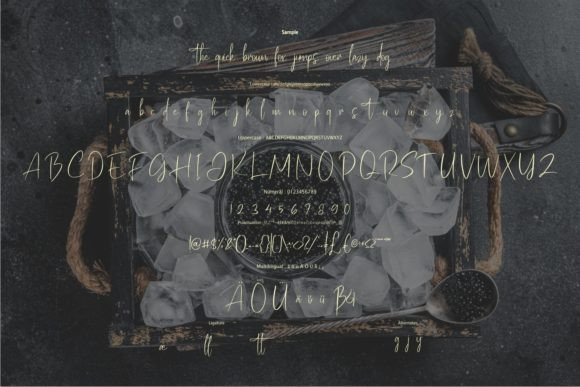 Sample
the quick brown fox jumps over lazy dog
Lowercase : abcdefghijklmnopqrstuvwxyz
a b c d e f g h i j k l m n o p q r s t u v w x y z
Uppercase : ABCDEFGHIJKLMNOPQRSTUVWXYZ
ABCDEFGHIJKLMNOPQRSTUVWXYZ
Numeral : 0123456789
1 2 3 4 5 6 7 8 9 0
Multilingual :
Ä Ö Ü ä ü ü
Ligature
Alternates
æ ll tt
g j y